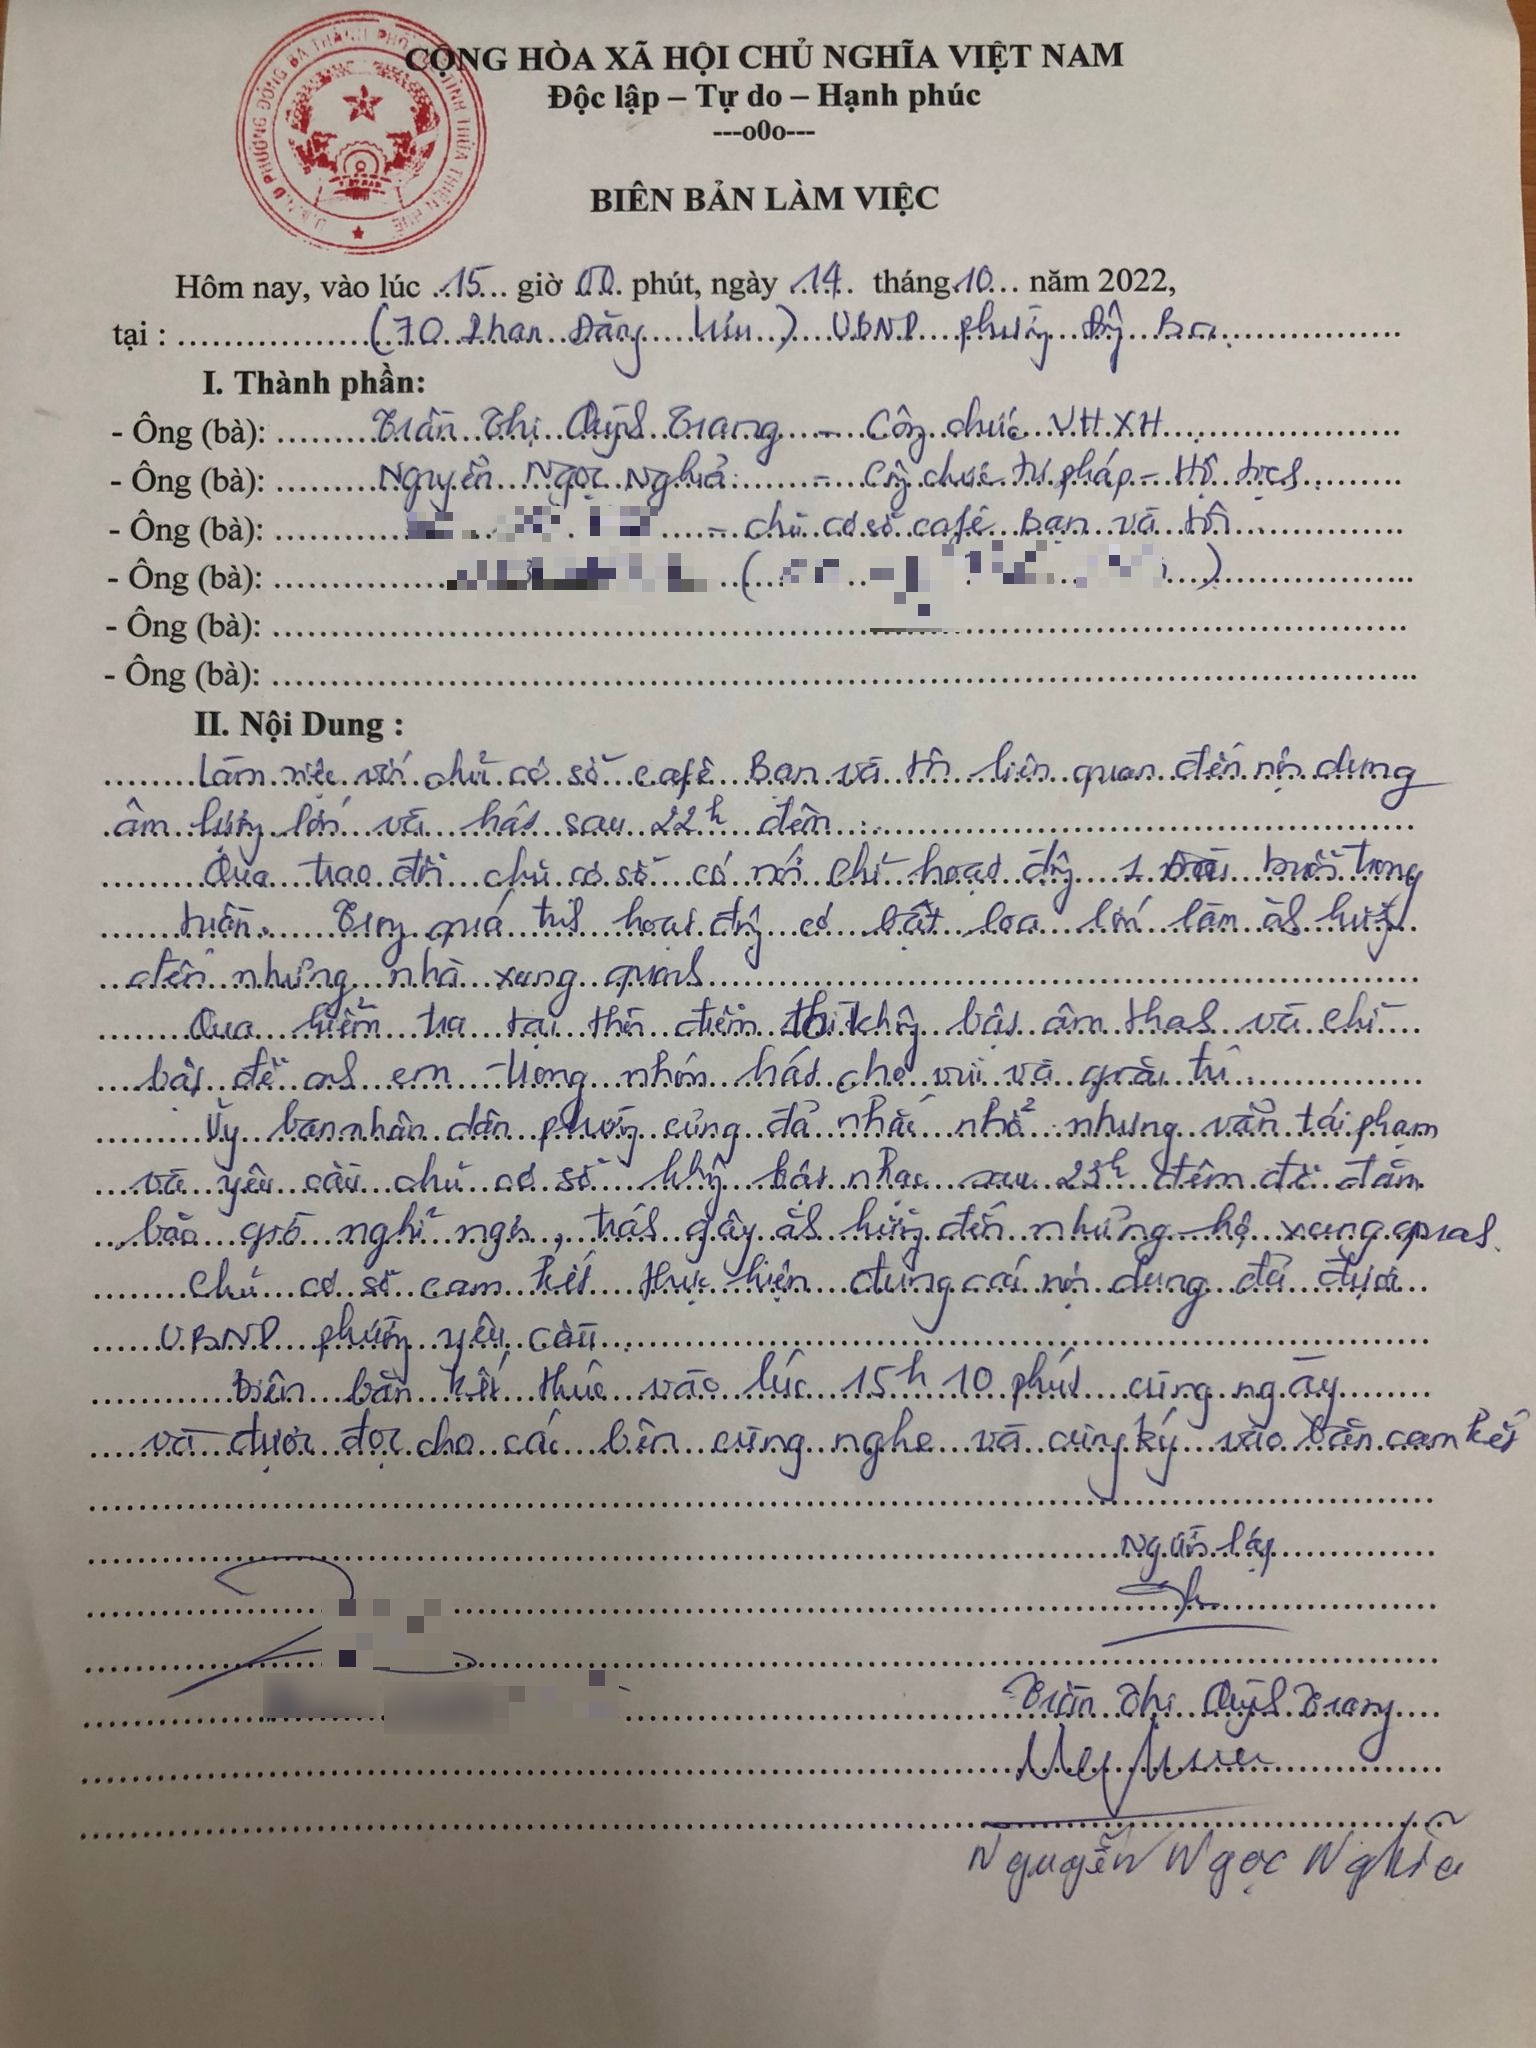 CỘNG HÒA XÃ HỘI CHỦ NGHĨA VIỆT NAM
Độc lập – Tự do – Hạnh phúc
---o0o---
BIÊN BẢN LÀM VIỆC
Hôm nay, vào lúc 15 giờ 00 phút, ngày 14 tháng 10 năm 2022,
tại : (70 Phan Đăng Lưu) UBND phường Đông Ba
I. Thành phần:
- Ông (bà): Trần Thị Quỳnh Trang - Công chức VHXH
- Ông (bà): Nguyễn Ngọc Nghĩa - Công chức tư pháp - Hộ tịch
- Ông (bà): - chủ cơ sở café Bạn và tôi
- Ông (bà):
- Ông (bà):
- Ông (bà):
II. Nội Dung :
Làm việc với chủ cơ sở café Bạn và tôi liên quan đến nội dung
âm lượng lớn và hát sau 22h đêm
Qua trao đổi chủ cơ sở có nói chỉ hoạt động 1 vài buổi trong
tuần. Trong quá trình hoạt động có bật loa lớn làm ảnh hưởng
đến những nhà xung quanh
Qua kiểm tra tại thời điểm thì không bật âm thanh và chỉ
bật để anh em trong nhóm hát cho vui và giải trí
Ủy ban nhân dân phường cũng đã nhắc nhở nhưng vẫn tái phạm
và yêu cầu chủ cơ sở không hát nhạc sau 22h đêm để đảm
bảo giờ nghỉ ngơi, tránh gây ảnh hưởng đến những hộ xung quanh.
Chủ cơ sở cam kết thực hiện đúng các nội dung đã được
UBND phường yêu cầu
Biên bản kết thúc vào lúc 15h 10 phút cùng ngày
và được đọc cho các bên cùng nghe và cùng ký vào bản cam kết
Người lập
Trần Thị Quỳnh Trang
Nguyễn Ngọc Nghĩa